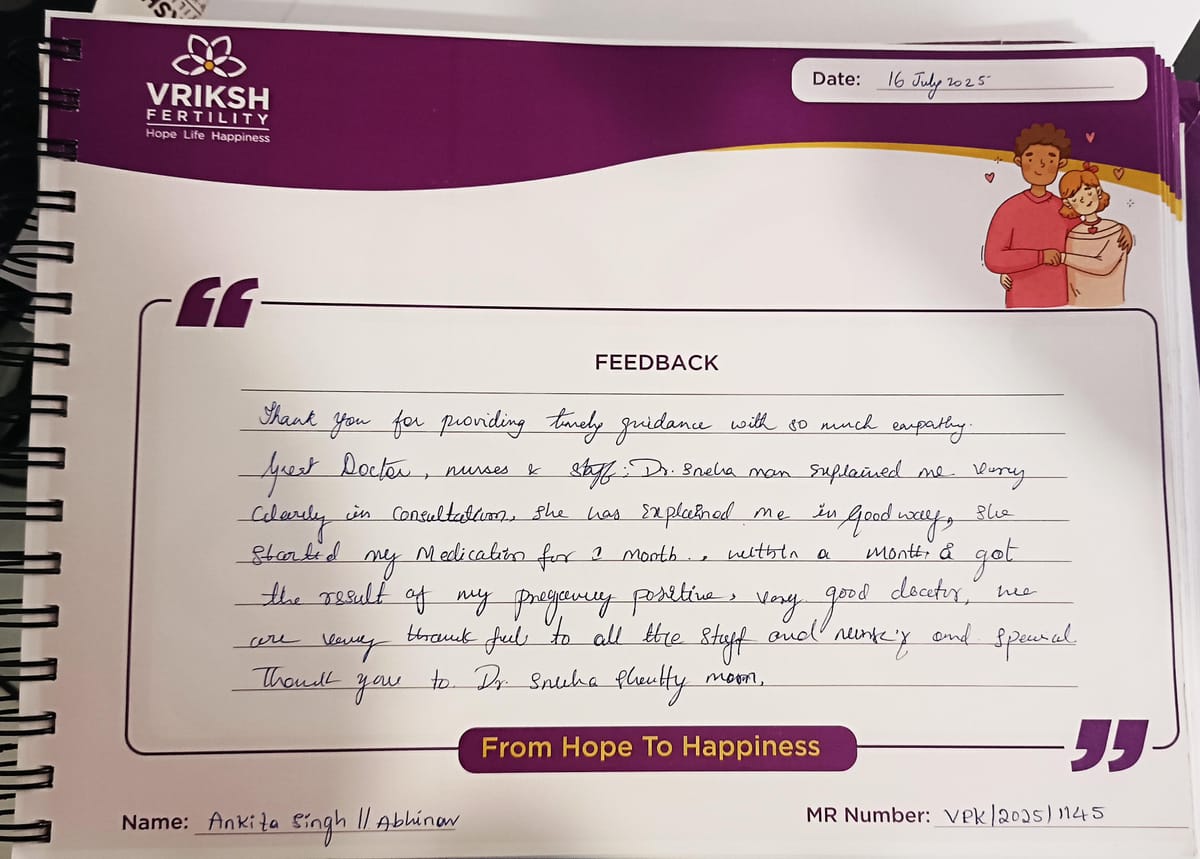 VRIKSH
FERTILITY
Hope Life Happiness
Date: 16 July 2025
FEEDBACK
Thank you for providing timely guidance with so much empathy.
Great Doctor, nurses & staff: Dr. Sneha mam explained me very
Clearly in Consultation, she has Explained me in good way, she
Started my Medication for 1 month., within a month I got
the result of my pregancy positive, very good doctor, we
are very thank ful to all the staff and and special
Thank you to Dr. Sneha Shetty mam,
From Hope To Happiness
Name: Ankita Singh // Abhinav
MR Number: VPK/2025/1145